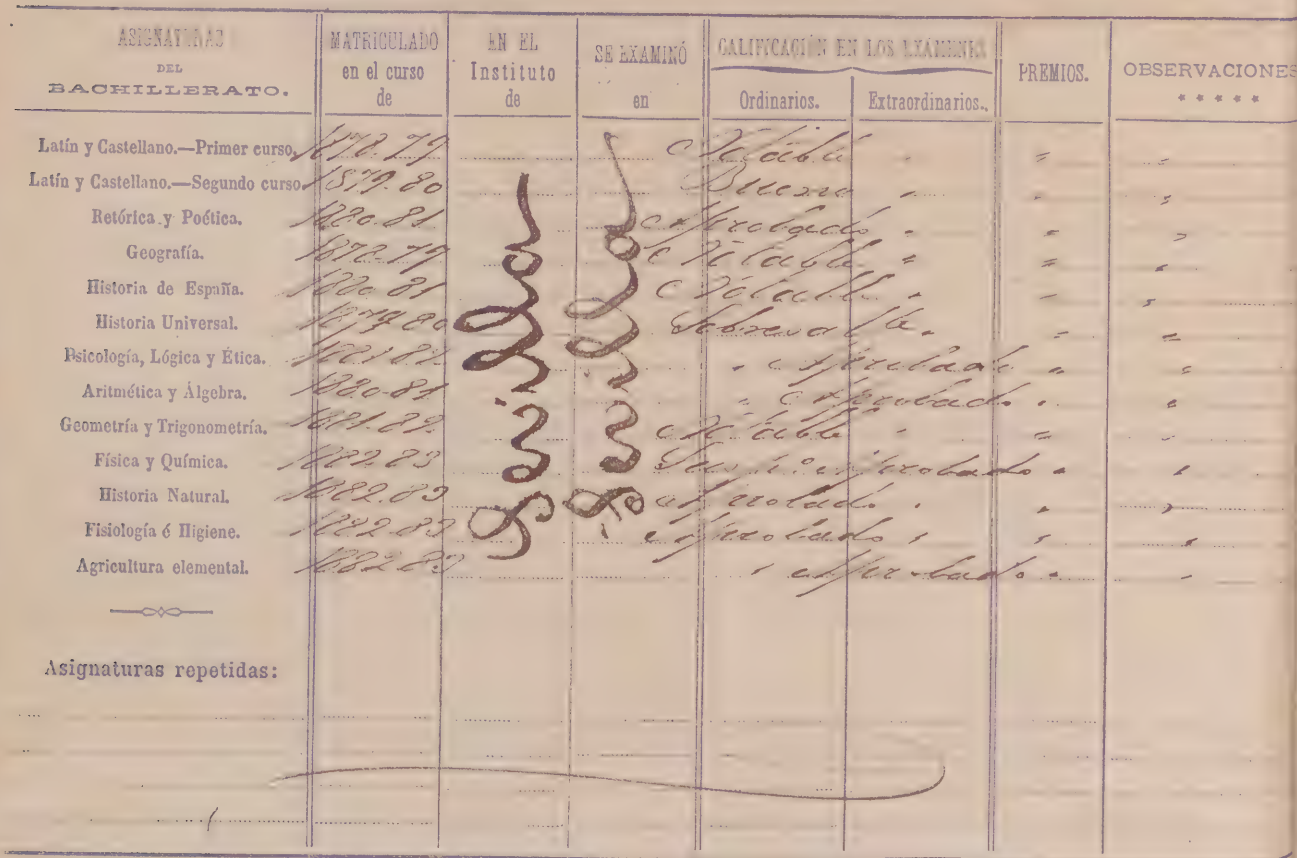 ASIGNATURAS DEL BACHILLERATO. MATRICULADO en el curso de EN EL Instituto de SE EXAMINÓ en CALIFICACIÓN EN LOS EXÁMENES Ordinarios. Extraordinarios. PREMIOS. OBSERVACIONES
Latín y Castellano.—Primer curso. 1878.79 Notable " " "
Latín y Castellano.—Segundo curso 1879.80 Bueno " " "
Retórica y Poética. 1880.81 Aprobado " " "
Geografía. 1878.79 Notable " " "
Historia de España. 1880.81 Notable " " "
Historia Universal. 1879.80 " " "
Psicología, Lógica y Ética. 1881.82 " Aprobado " "
Aritmética y Álgebra. 1880.81 " Aprobado " "
Geometría y Trigonometría. 1881.82 Notable " " "
Física y Química. 1882.83 Aprobado " "
Historia Natural. 1882.83 Aprobado " " "
Fisiología é Higiene. 1882.83 Aprobado " " "
Agricultura elemental. 1882.83 " Aprobado " "
Asignaturas repetidas: